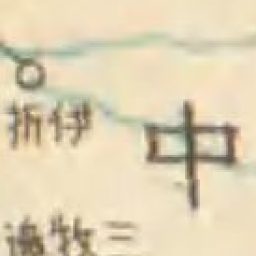 折伊
中
牧三